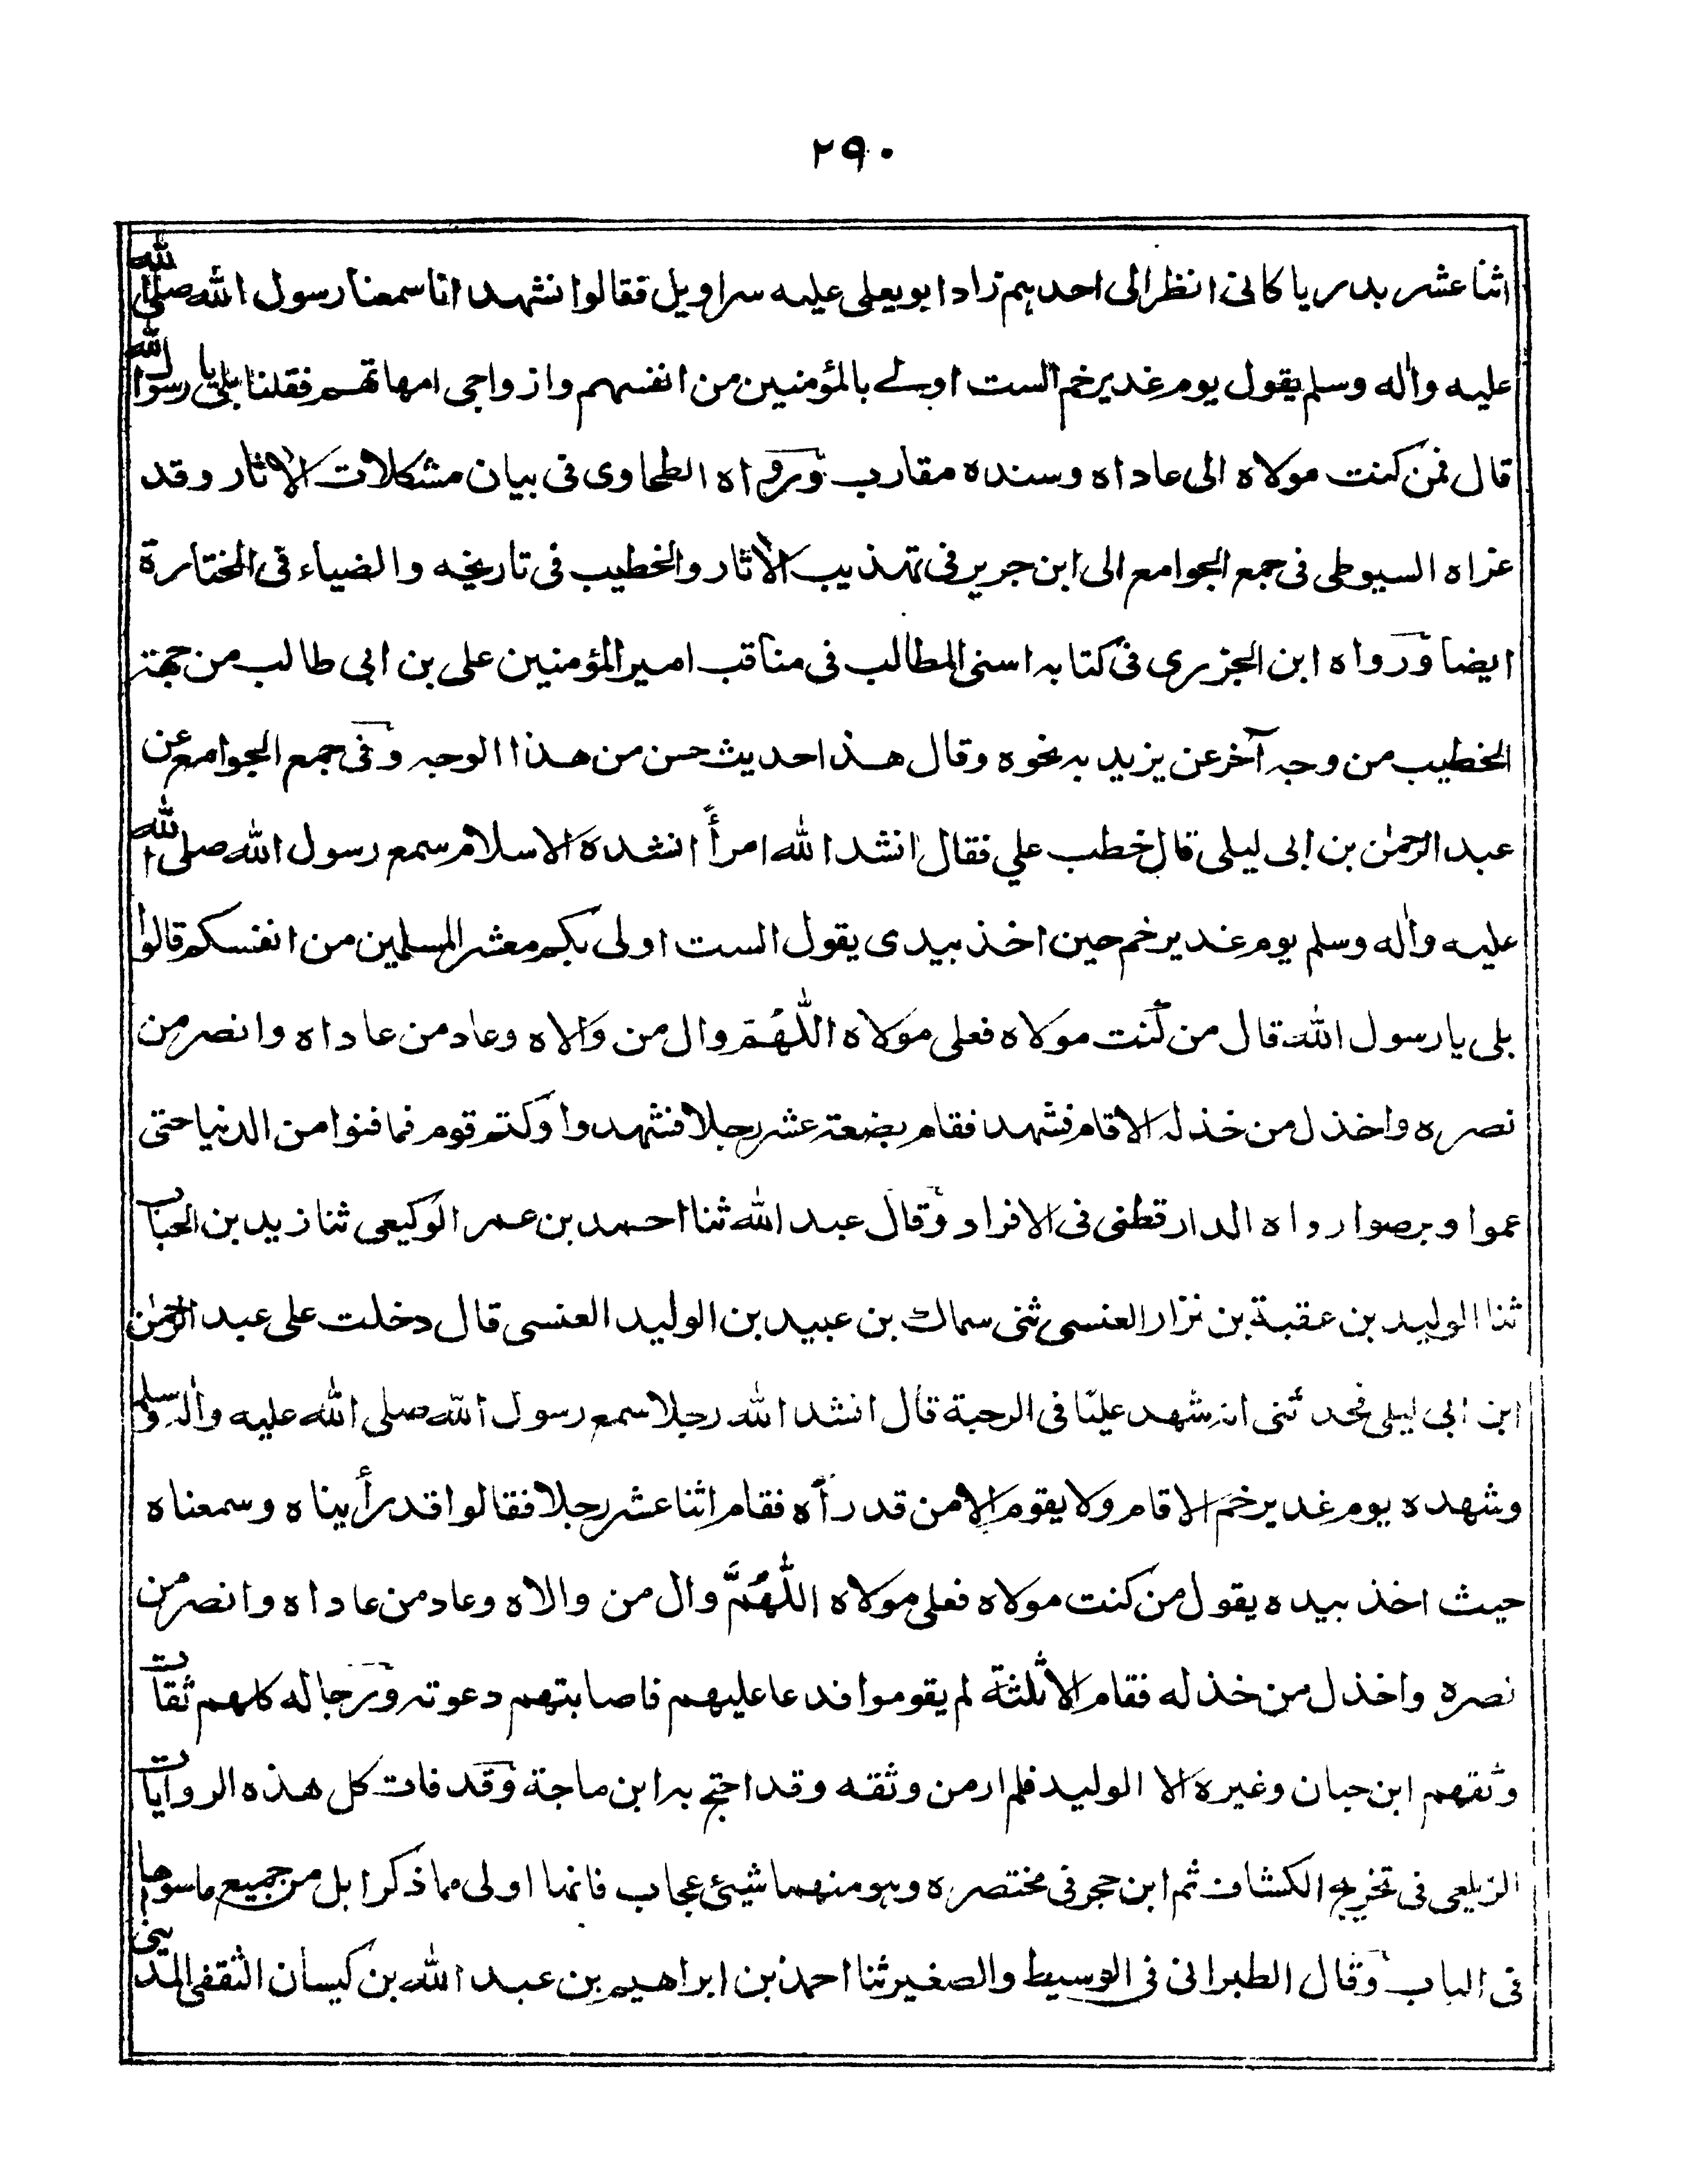 ٢٩٠
اثنا عشر بدريا كانى انظر الى احدهم زاد ابويعلى عليه سراويل فقالوا نشهد انا سمعنا رسول الله صلى الله
عليه واٰله وسلم يقول يوم غدير خم الست اولے بالمؤمنين من انفسهم وازواجى امهاتهم فقلنا بلى يا رسول الله
قال فمن كنت مولاه الى عاداه وسنده مقارب ورواه الطحاوى فى بيان مشكلات الاٰثار وقد
عزاه السيوطى فى جمع الجوامع الى ابن جرير فى تهذيب الاٰثار والخطيب فى تاريخه والضياء فى المختارة
ايضا ورواه ابن الجزرى فى كتابه اسنى المطالب فى مناقب امير المؤمنين على بن ابى طالب من جهة
الخطيب من وجه آخر عن يزيد به نحوه وقال هذا حديث حسن من هذا الوجه وفى جمع الجوامع عن
عبد الرحمٰن بن ابى ليلى قال خطب علي فقال انشد الله امرأً انشده الاسلام سمع رسول الله صلى الله
عليه واٰله وسلم يوم غدير خم حين اخذ بيدى يقول الست اولى بكم معشر المسلمين من انفسكم قالوا
بلى يا رسول الله قال من كنت مولاه فعلى مولاه اللّٰهُمَّ وال من والاه وعاد من عاداه وانصر من
نصره واخذل من خذله الا قام فشهد فقام بضعة عشر رجلا فشهدوا وكتم قوم فما فنوا من الدنيا حتى
عموا وبرصوا رواه الدارقطنى فى الافراد وقال عبد الله ثنا احمد بن عمر الوكيعى ثنا زيد بن الحباب
ثنا الوليد بن عقبة بن نزار العنسى ثنى سماك بن عبيد بن الوليد العنسى قال دخلت على عبد الرحمٰن
ابن ابى ليلى فحدثنى انه شهد عليًا فى الرحبة قال انشد الله رجلا سمع رسول الله صلى الله عليه واٰله وسلم
وشهده يوم غدير خم الا قام ولا يقوم الا من قد رآه فقام اثنا عشر رجلا فقالوا قد رأيناه وسمعناه
حيث اخذ بيده يقول من كنت مولاه فعلى مولاه اللّٰهُمَّ وال من والاه وعاد من عاداه وانصر من
نصره واخذل من خذله فقام الا ثلثة لم يقوموا فدعا عليهم فاصابتهم دعوته ورجاله كلهم ثقات
وثقهم ابن حبان وغيره الا الوليد فلم ار من وثقه وقد احتج به ابن ماجة وقد فات كل هذه الروايات
الزيلعى فى تخريج الكشاف ثم ابن حجر فى مختصره وهو منهما شيئ عجاب فانها اولى مما ذكرا بل من جميع ماسوها
فى الباب وقال الطبرانى فى الوسيط والصغير ثنا احمد بن ابراهيم بن عبد الله بن كيسان الثقفى المدينى